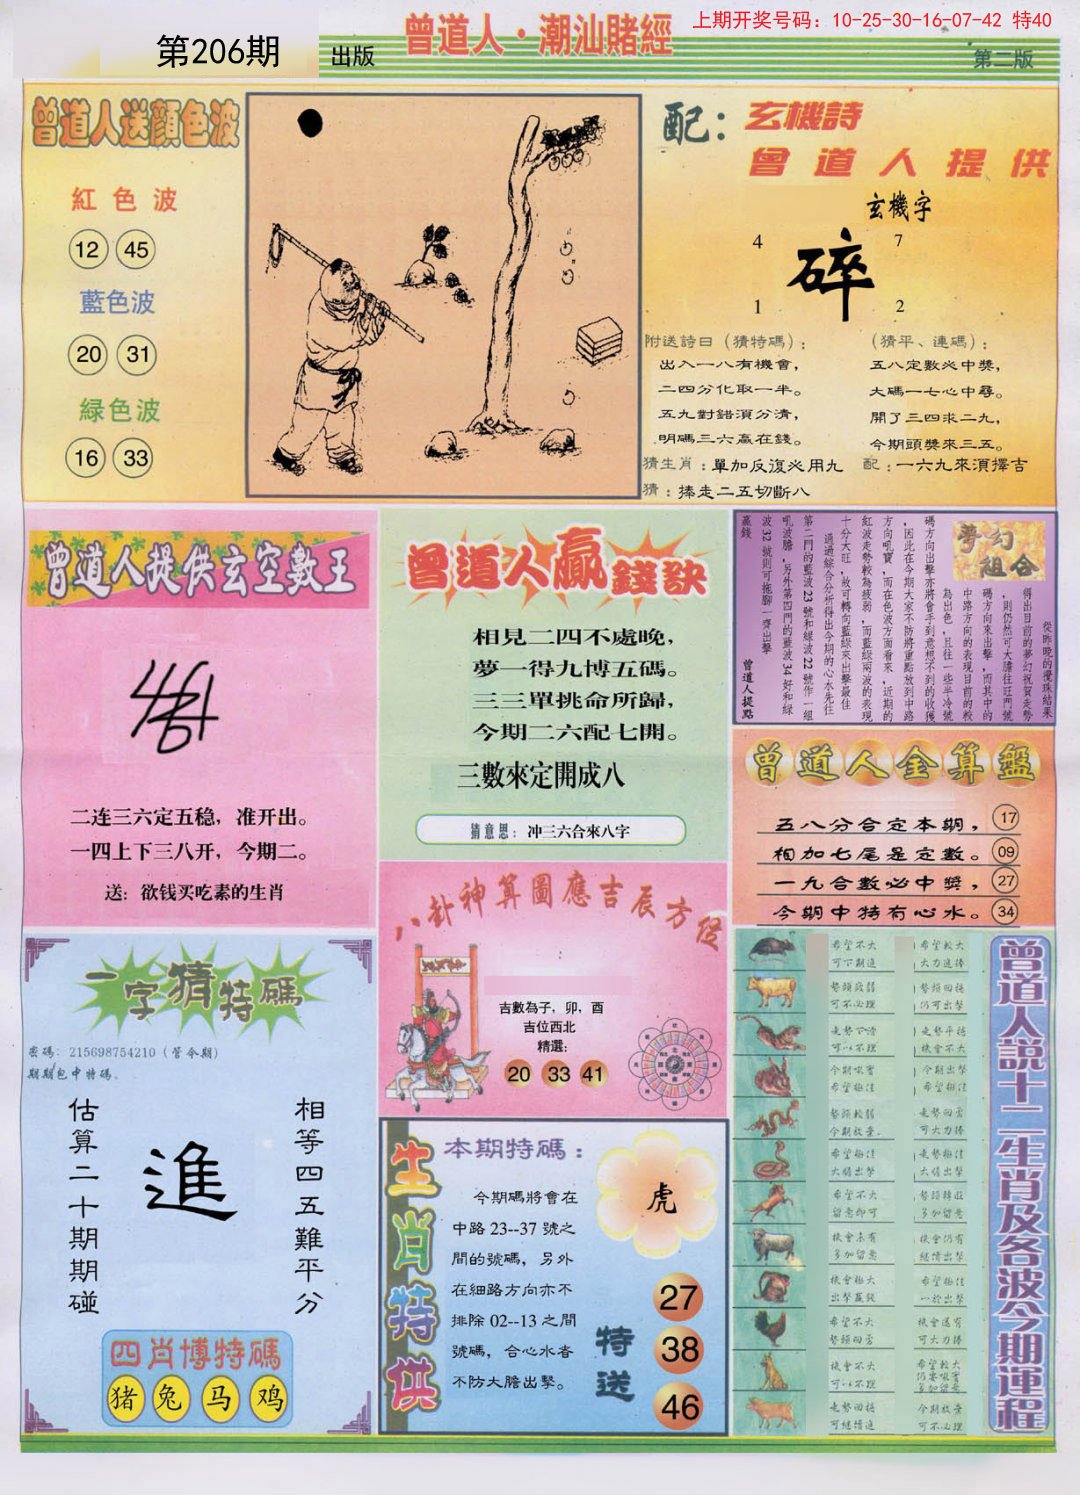 上期开奖号码：10-25-30-16-07-42 特40
第206期
出版
曾道人·潮汕賭經
第二版
曾道人送顔色波
紅色波
12 45
藍色波
20 31
緑色波
16 33
配：玄機詩
曾道人提供
玄機字
4 7
碎
1 2
附送詩曰（猜特碼）：
出入一八有機會，
二四分化取一半。
五九對錯須分清，
明碼三六贏在錢。
（猜平、連碼）：
五八定數必中獎，
大碼一七心中尋。
開了三四求二九，
今期頭獎來三五。
猜生肖：單加反復必用九
配：一六九來須擇吉
猜：捧走二五切斷八
曾道人提供玄空數王
二连三六定五稳，准开出。
一四上下三八开，今期二。
送：欲钱买吃素的生肖
曾道人贏錢訣
相見二四不處晚，
夢一得九博五碼。
三三單挑命所歸，
今期二六配七開。
三數來定開成八
猜意思：冲三六合來八字
夢幻組合
從昨晚的攪珠結果
得出目前的夢幻祝賀走勢
，則仍然可大膽往旺門號
碼方向來出擊，而其中的
中路方向的表現目前的較
為出色，且往一些半冷號
碼方向出擊亦將會手到意想不到的收獲
，因此在今期大家不防將重點放到中路
方向吼寶，而在色波方面看來，近期的
紅波走勢較為疲弱，而藍綠兩波的表現
十分大旺，故可轉向藍綠來出擊最佳
通過綜合分析得出今期的心水先往
第二門的藍波23號和綠波22號作一組
吼波膽，另外第四門的藍波34好和綠
波32號則可拖腳一齊出擊
贏錢
曾道人提點
曾道人金算盤
五八分合定本期， 17
相加七尾是定數。 09
一九合數必中獎， 27
今期中特有心水。 34
八卦神算圖應吉辰方位
吉數為子，卯，酉
吉位西北
精選：
20 33 41
一字猜特碼
密碼：215698754210（管令期）
期期包中特碼。
估算二十期期碰
進
相等四五難平分
四肖博特碼
猪 兔 马 鸡
生肖特供
本期特碼：
今期碼將會在
中路 23--37 號之
間的號碼，另外
在細路方向亦不
排除 02--13 之間
號碼，合心水者
不防大膽出擊。
虎
特送
27
38
46
曾道人說十二生肖及各波今期運程
希望不大
可下期進
希望較大
大力進捧
走勢下滑
可以不理
走勢平穩
機會不大
希望極佳
今期出擊
希望極佳
走勢極佳
大膽出擊
希望不大
留意即可
機會未有
多加留意
機會仍有
繼續出擊
機會極大
出擊贏錢
希望極佳
一於出擊
希望不大
機會還有
可大力捧
機會不大
可以不理
走勢回穩
可繼續進
今期放棄
可不必理